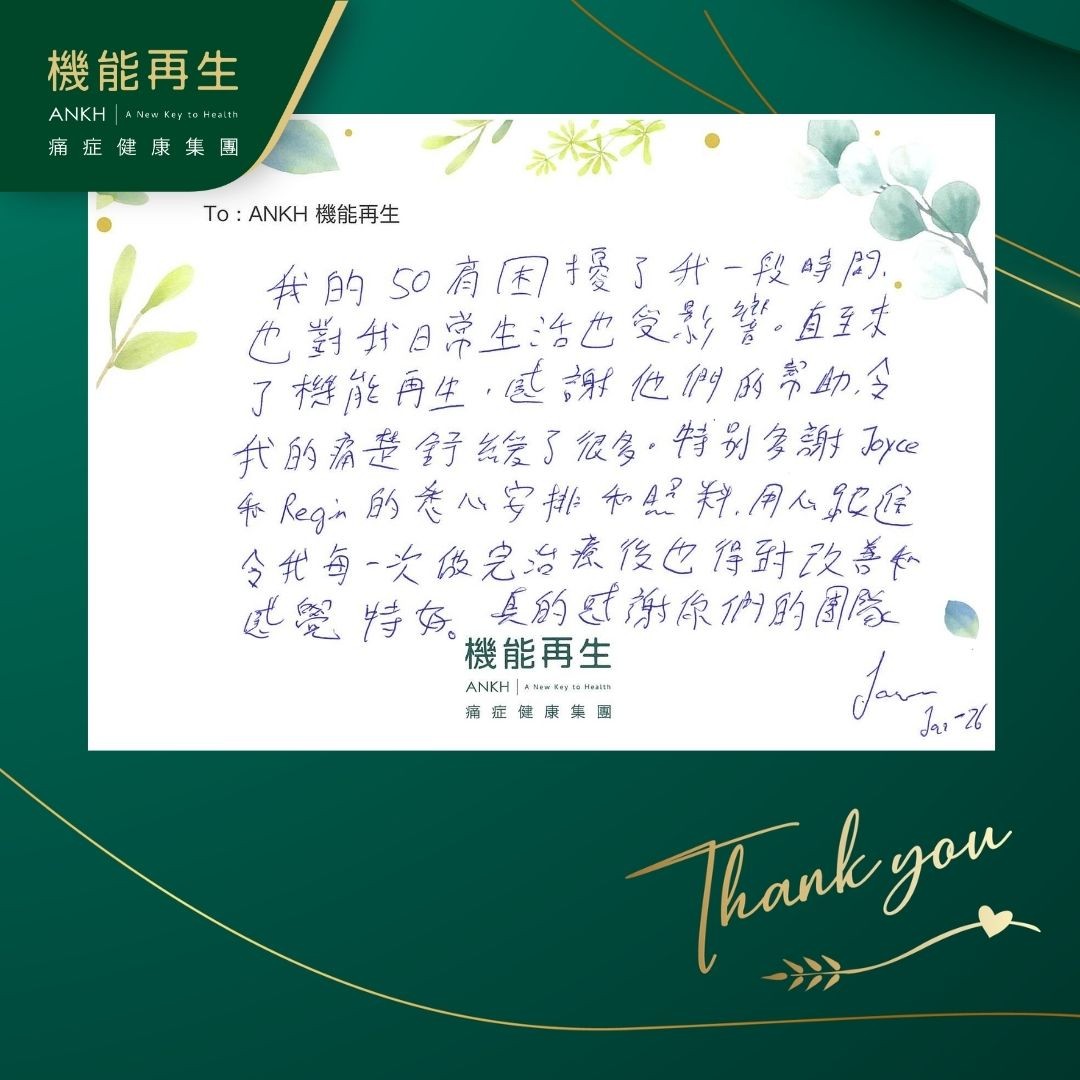 機能再生
ANKH | A New Key to Health
痛症健康集團
To : ANKH 機能再生
我的50肩困擾了我一段時間,
也對我日常生活也受影響。直至來
了機能再生,感謝他們的幫助,令
我的痛楚舒緩了很多。特別多謝 Joyce
和 Regin 的悉心安排和照料,用心跟進
令我每一次做完治療後也得到改善和
感覺特好。真的感謝你們的團隊
機能再生
ANKH | A New Key to Health
痛症健康集團
Thank you